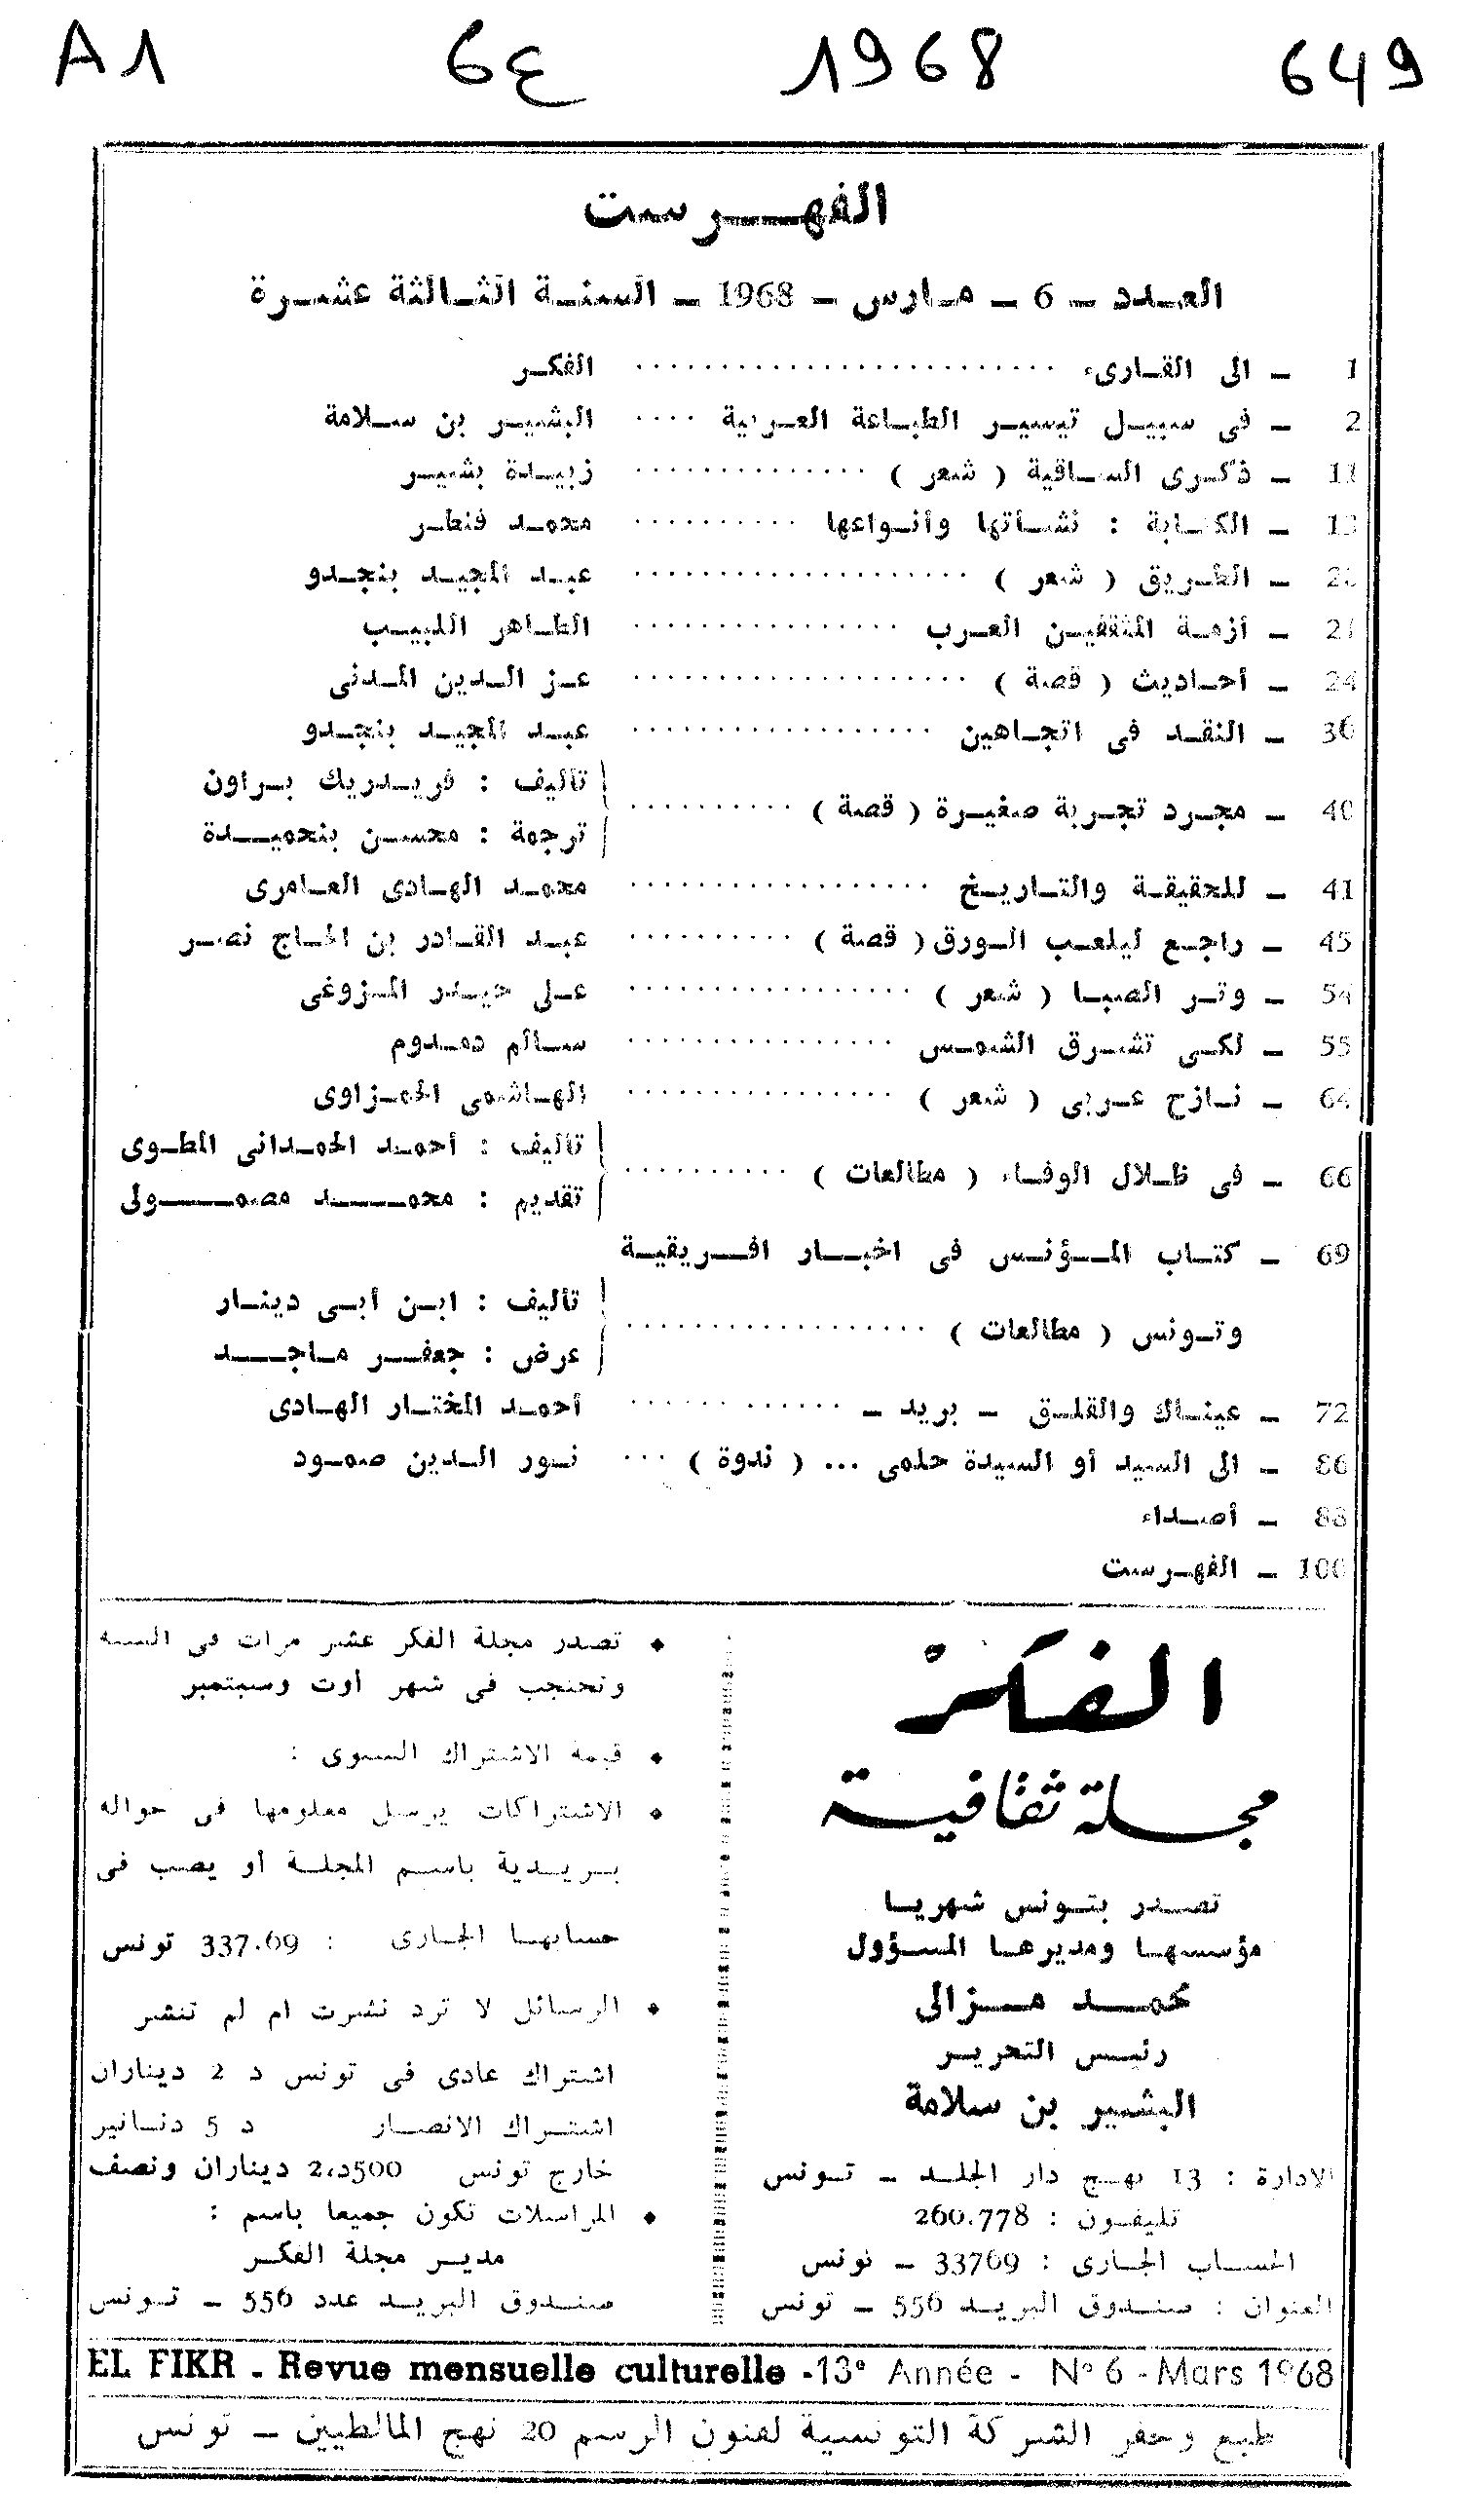 A1 6ع 1968 649
الفهـــرست
العـدد ـ 6 ـ مـارس ـ 1968 ـ السنـة الثـالثة عشـرة
1 ـ الى القـارىء ........................ الفكـر
2 ـ فى سبيـل تيسيـر الطبـاعة العـربية .... البشيـر بن سـلامة
11 ـ ذكـرى السـاقية ( شعر ) .............. زبيـدة بشيـر
13 ـ الكتـابة : نشـأتها وأنـواعها .......... محمـد فنطـر
ـ الطـريق ( شعر ) .................... عبـد المجيـد بنجـدو
21 ـ أزمـة المثقفيـن العـرب ................ الطـاهر اللبيـب
24 ـ أحـاديث ( قصة ) .................... عـز الـدين المـدنى
36 ـ النقـد فى اتجـاهين .................. عبـد المجيـد بنجـدو
40 ـ مجـرد تجـربة صغيـرة ( قصة ) .......... تأليف : فريـدريك بـراون
ترجمة : محسـن بنحميـــدة
41 ـ للحقيقـة والتـاريـخ .................. محمـد الهـادى العـامرى
45 ـ راجـع ليلعـب الـورق ( قصة ) .......... عبـد القـادر بن الحـاج نصـر
54 ـ وتـر الصبـا ( شعر ) ................. عـلى حيـدر المـزوغى
55 ـ لكـى تشـرق الشمـس ................ سـالم دمـدوم
64 ـ نـازح عـربى ( شعر ) ................ الهـاشمى الحمـزاوى
66 ـ فى ظـلال الوفـاء ( مطالعات ) .......... تأليف : أحمـد الحمـدانى المطـوى
تقديم : محمـــد مصمـــولى
69 ـ كتـاب المـؤنـس فى اخبـار افـريقيـة
وتـونس ( مطالعات ) .................. تأليف : ابـن أبـى دينـار
عرض : جعفـر مـاجـــد
72 ـ عينـاك والقلـق ـ بريد ـ ............ أحمـد المختـار الهـادى
86 ـ الى السيد أو السيدة حلمى ... ( ندوة ) ... نـور الـدين صمـود
88 ـ أصـداء
100 ـ الفهـرست
الفكر
مجلة ثقافية
تصـدر بتـونس شهريـا
مؤسسهـا ومديرهـا المسـؤول
محمـد مـزالى
رئيـس التحريـر
البشيـر بن سلامة
الادارة : 13 نهـج دار الجلـد ـ تـونس
تليفـون : 260.778
الحسـاب الجـارى : 33769 ـ تونس
العنوان : صنـدوق البريـد 556 ـ تونس
♦ تصـدر مجلة الفكر عشر مرات فى السنة
وتحتجب فى شهر أوت وسبتمبر
♦ قيمة الاشتراك السنوى :
♦ الاشتراكات يرسـل معلومها فى حوالة
بـريـدية باسـم المجلـة أو يصب فى
حسابهـا الجـارى : 337.69 تونس
♦ الرسائل لا ترد نشرت ام لم تنشر
اشتراك عادى فى تونس د 2 ديناران
اشتـراك الانصـار د 5 دنـانير
خارج تونس 500د،2 ديناران ونصف
♦ المراسلات تكون جميعا باسم :
مديـر مجلة الفكـر
صنـدوق البريـد عدد 556 ـ تـونس
EL FIKR - Revue mensuelle culturelle - 13e Année - N° 6 - Mars 1968
طبع وحفر الشركة التونسية لفنون الرسم 20 نهج المالطيين ـ تونس